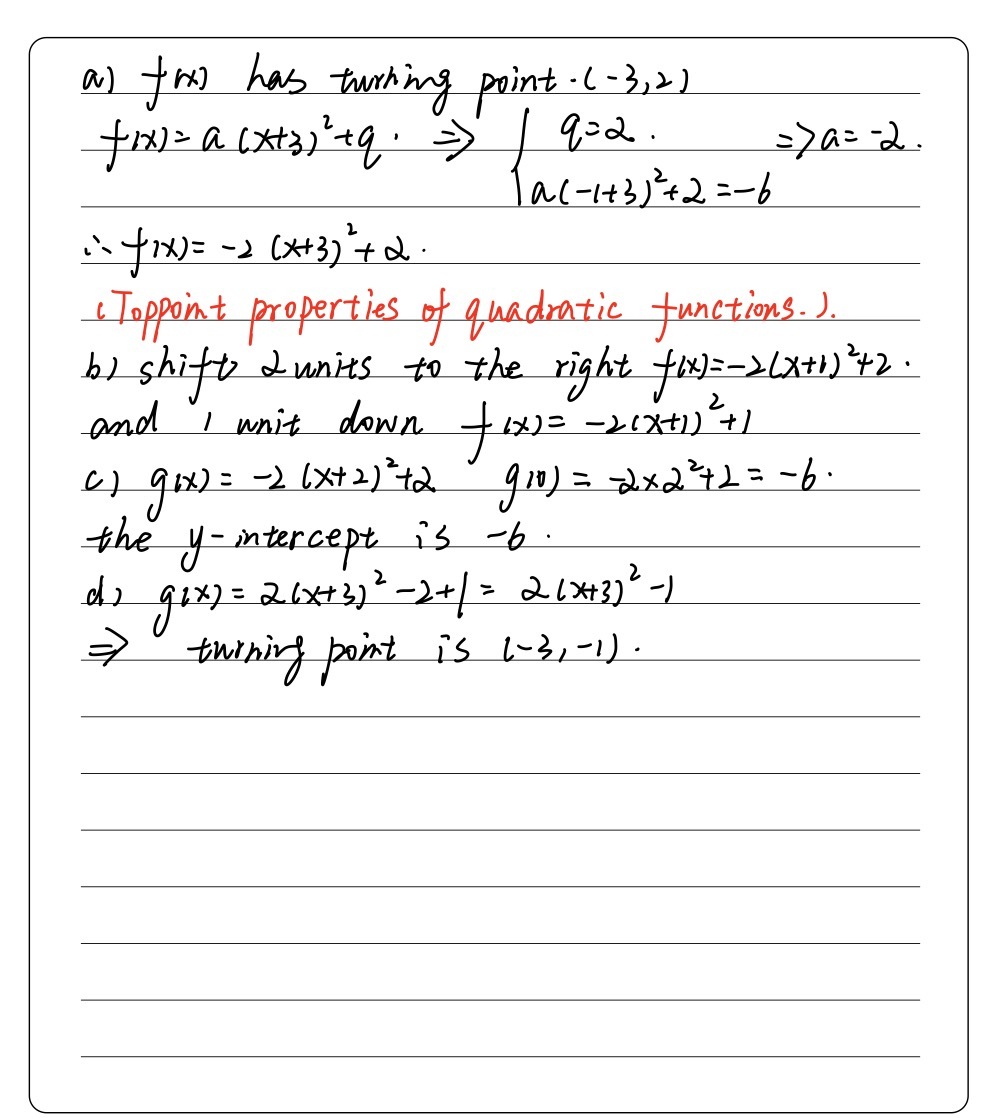 a) f(x) has turning point.(-3,2)
f(x)=a(x+3)²+q. ⇒ { q=2. a(-1+3)²+2=-6 =>a=-2.
∴ f(x)= -2(x+3)²+2.
(Toppoint properties of quadratic functions.).
b) shift 2 units to the right f(x)=-2(x+1)²+2.
and 1 unit down f(x)= -2(x+1)²+1
c) g(x)= -2(x+2)²+2 g(0)= -2×2²+2= -6.
the y-intercept is -6.
d) g(x)= 2(x+3)²-2+1= 2(x+3)²-1
⇒ turning point is (-3,-1).